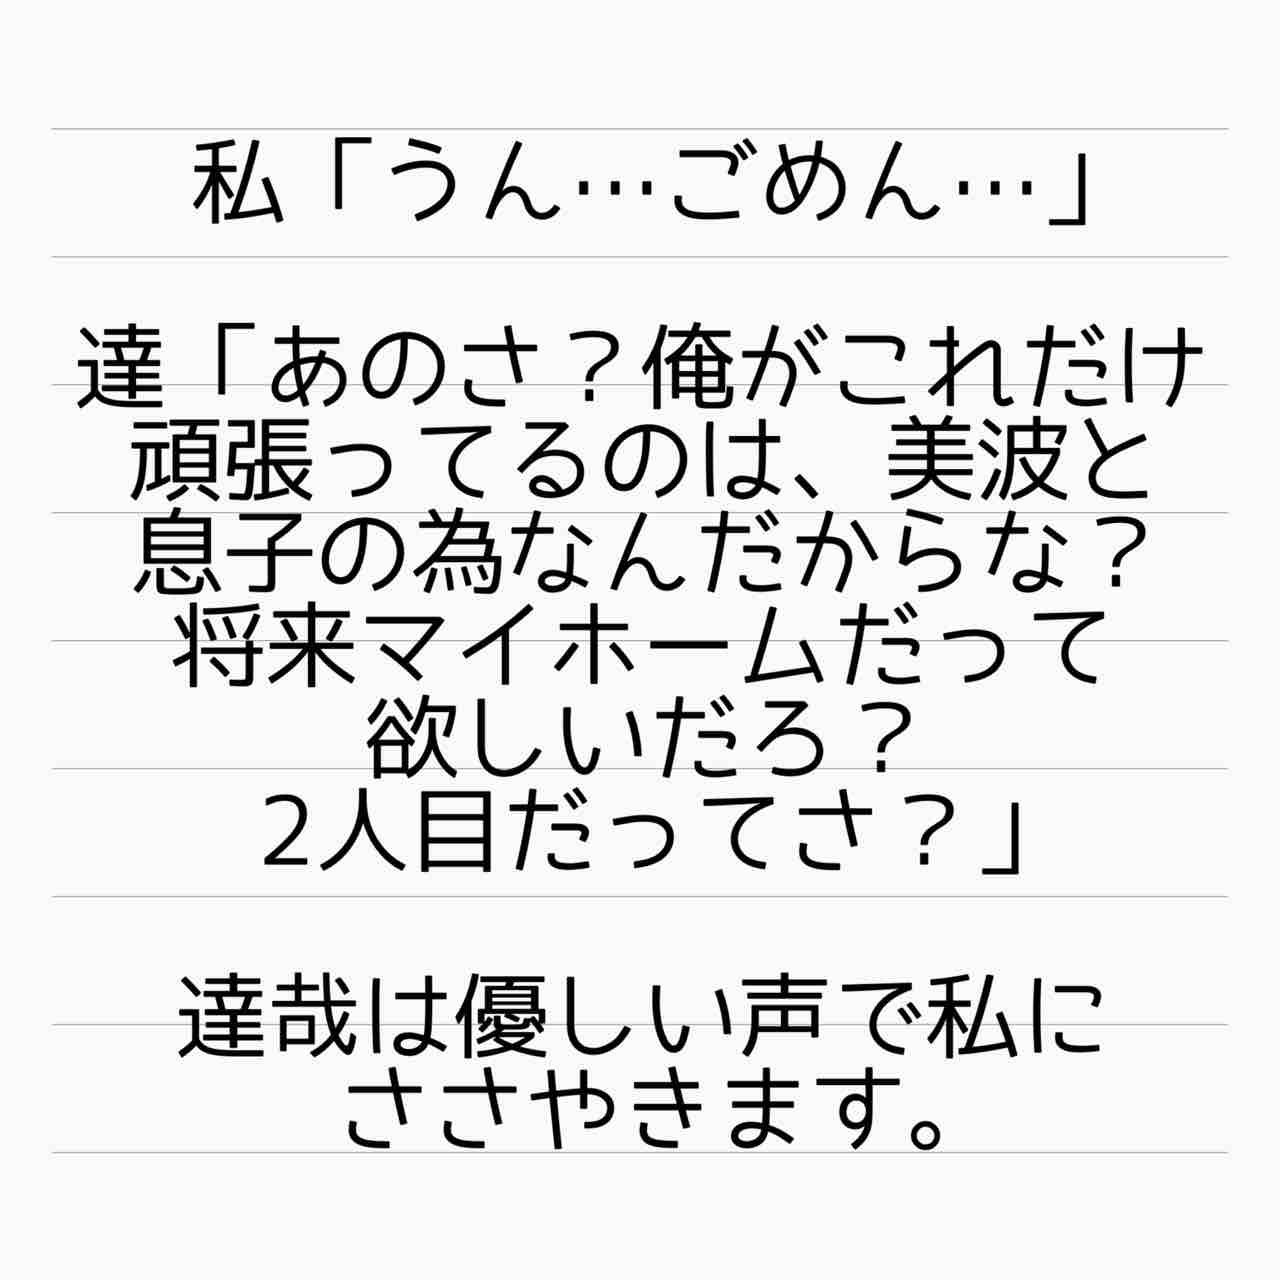 私「うん…ごめん…」
達「あのさ？俺がこれだけ
頑張ってるのは、美波と
息子の為なんだからな？
将来マイホームだって
欲しいだろ？
2人目だってさ？」
達哉は優しい声で私に
ささやきます。